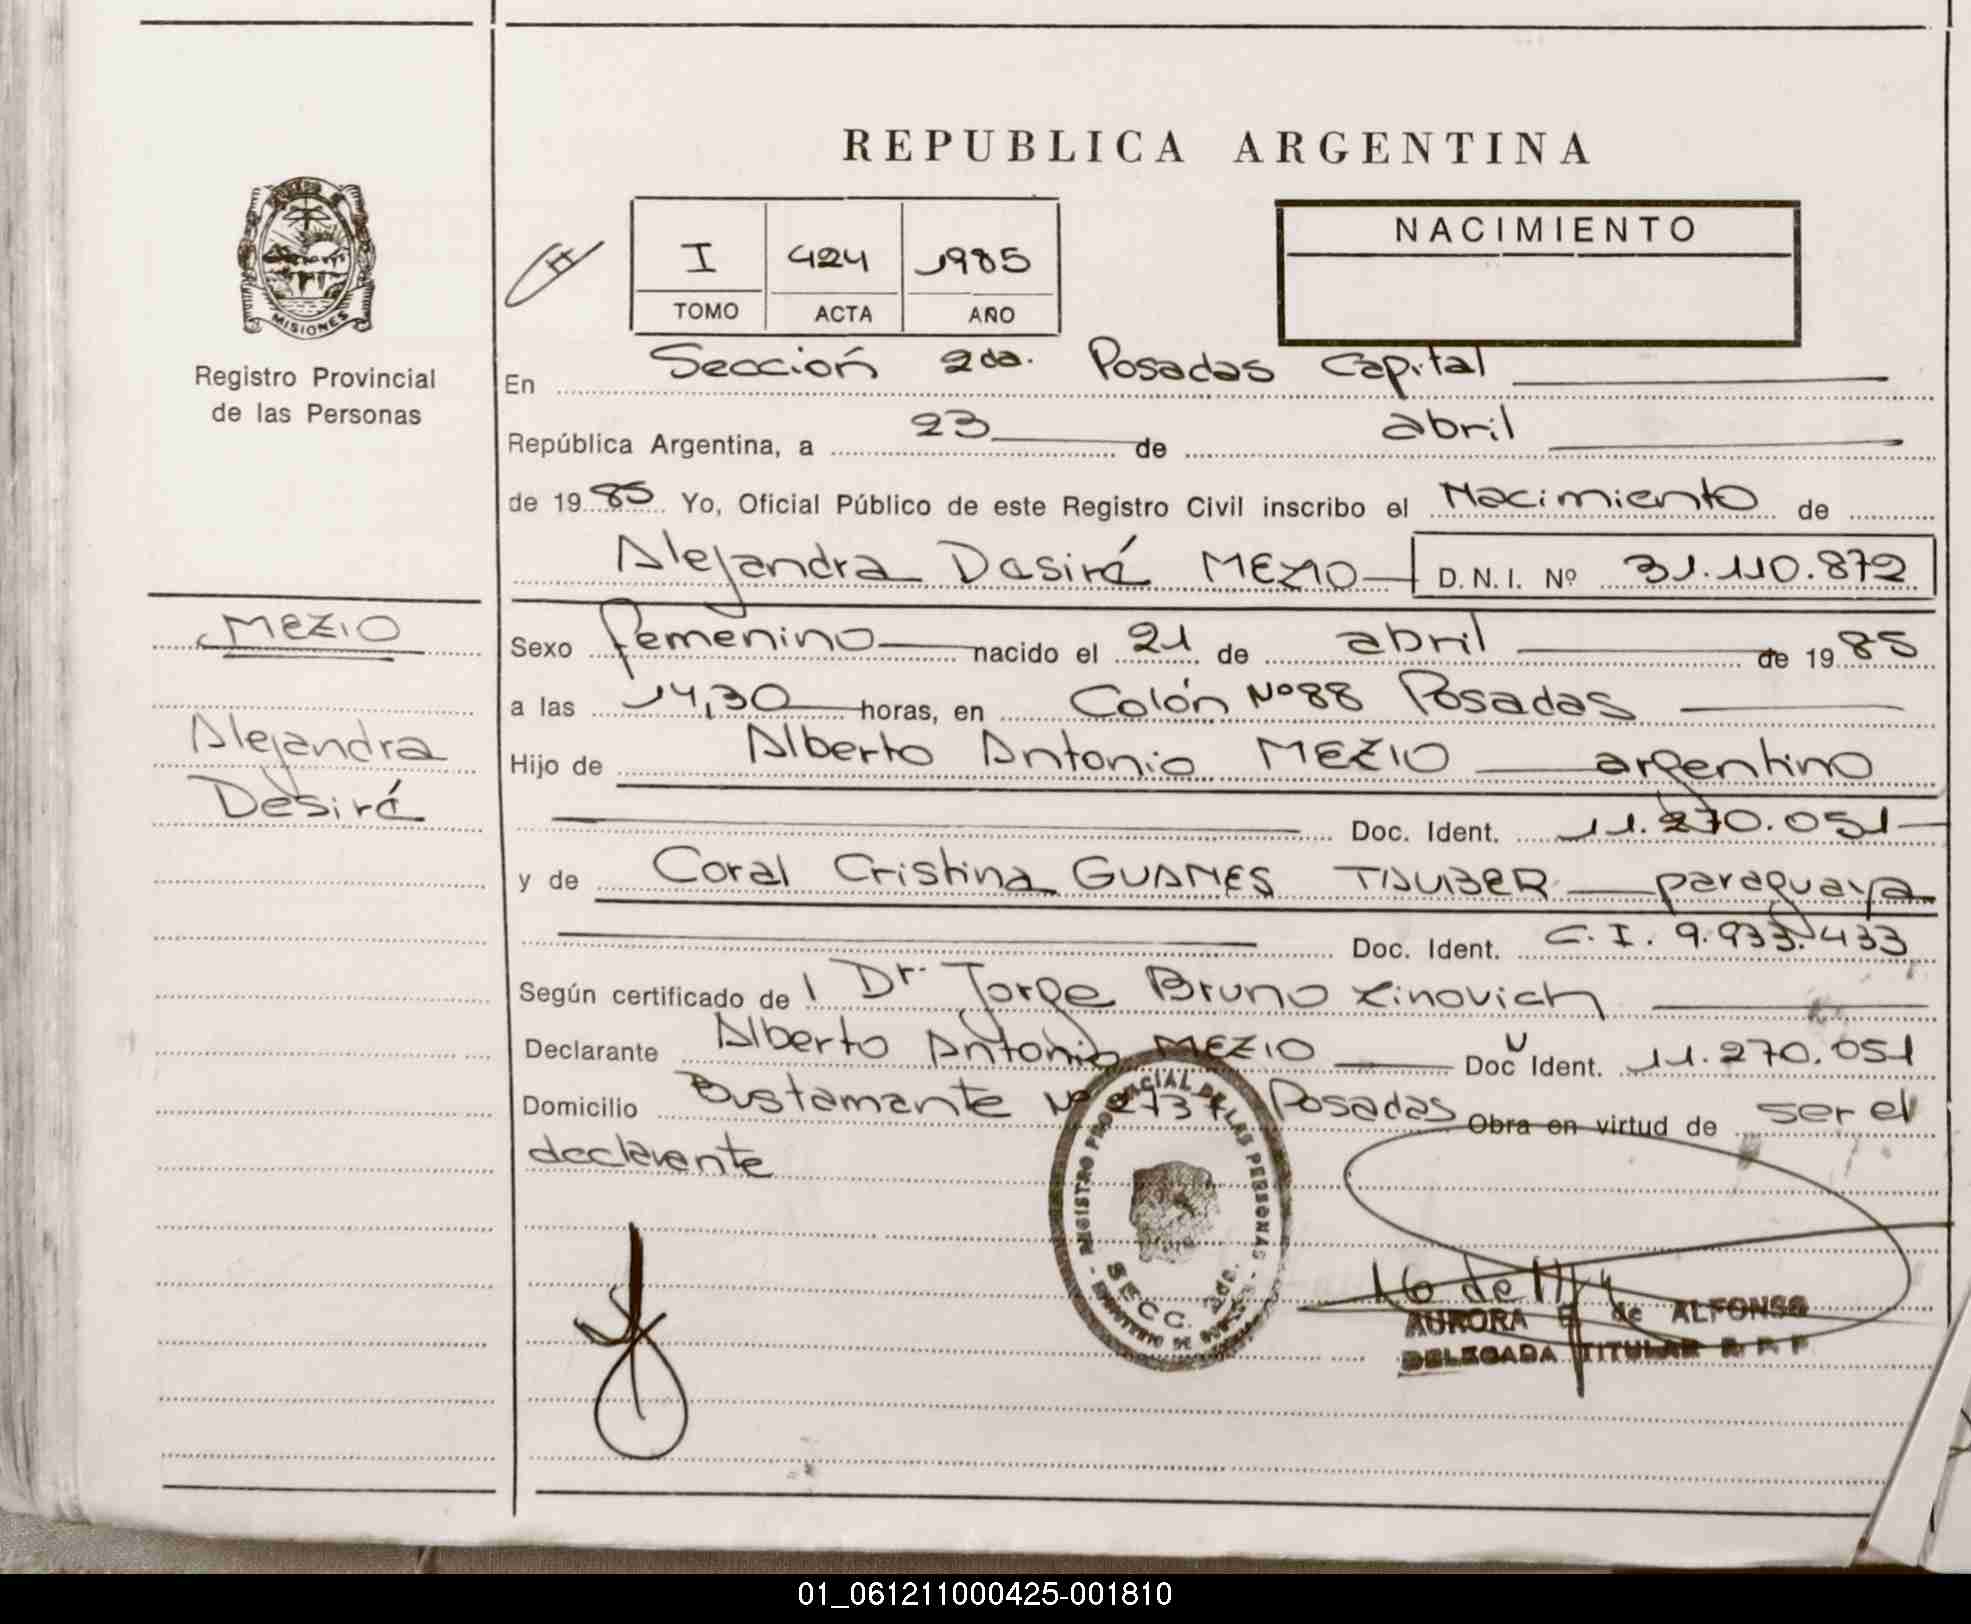 REPUBLICA ARGENTINA
MISIONES
Registro Provincial
de las Personas
I 424 1985
TOMO ACTA AÑO
NACIMIENTO
En Sección 2da. Posadas Capital
República Argentina, a 23 de abril
de 1985 Yo, Oficial Público de este Registro Civil inscribo el Nacimiento de
Alejandra Desiré MEZIO D.N.I. Nº 31.110.872
MEZIO
Alejandra
Desiré
Sexo femenino nacido el 21 de abril de 1985
a las 14,30 horas, en Colón Nº 88 Posadas
Hijo de Alberto Antonio MEZIO argentino
Doc. Ident. 11.270.051
y de Coral Cristina GUANES TAUBER paraguaya
Doc. Ident. C.I. 9.933.433
Según certificado de Dr. Jorge Bruno Zinovich
Declarante Alberto Antonio MEZIO Doc Ident. 11.270.051
Domicilio Bustamante Nº Posadas Obra en virtud de ser el
declarante
REGISTRO PROVINCIAL DE LAS PERSONAS
SECC. 2da.
AURORA E de ALFONSO
DELEGADA TITULAR R P P
01_061211000425-001810